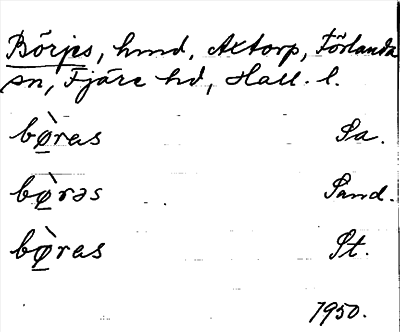 Börjes, hmd, Axtorp, Förlanda
sn, Fjäre hd, Hall. l.
bø̲̀ras Sa.
bø̲̀rəs Sand.
bø̲̀ras St.
1950.